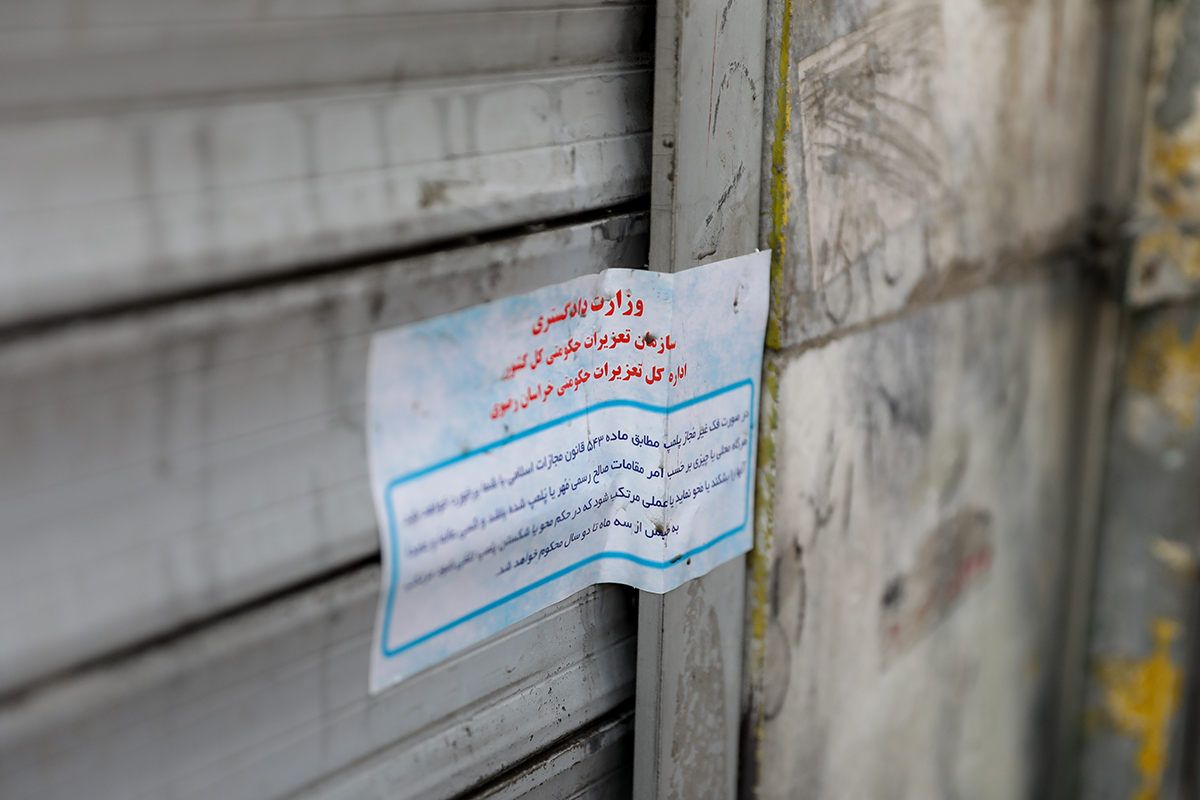 وزارت دادگستری
سازمان تعزیرات حکومتی کل کشور
اداره کل تعزیرات حکومتی خراسان رضوی
در صورت فک غیر مجاز پلمپ مطابق ماده ۵۴۳ قانون مجازات اسلامی با شما برخورد خواهد شد
هرگاه محلی یا چیزی بر حسب امر مقامات صالح رسمی مُهر یا پلمپ شده باشد و کسی
آنها را بشکند یا محو نماید یا عملی مرتکب شود که در حکم محو یا شکستن پلمپ تلقی شود
به حبس از سه ماه تا دو سال محکوم خواهد شد.